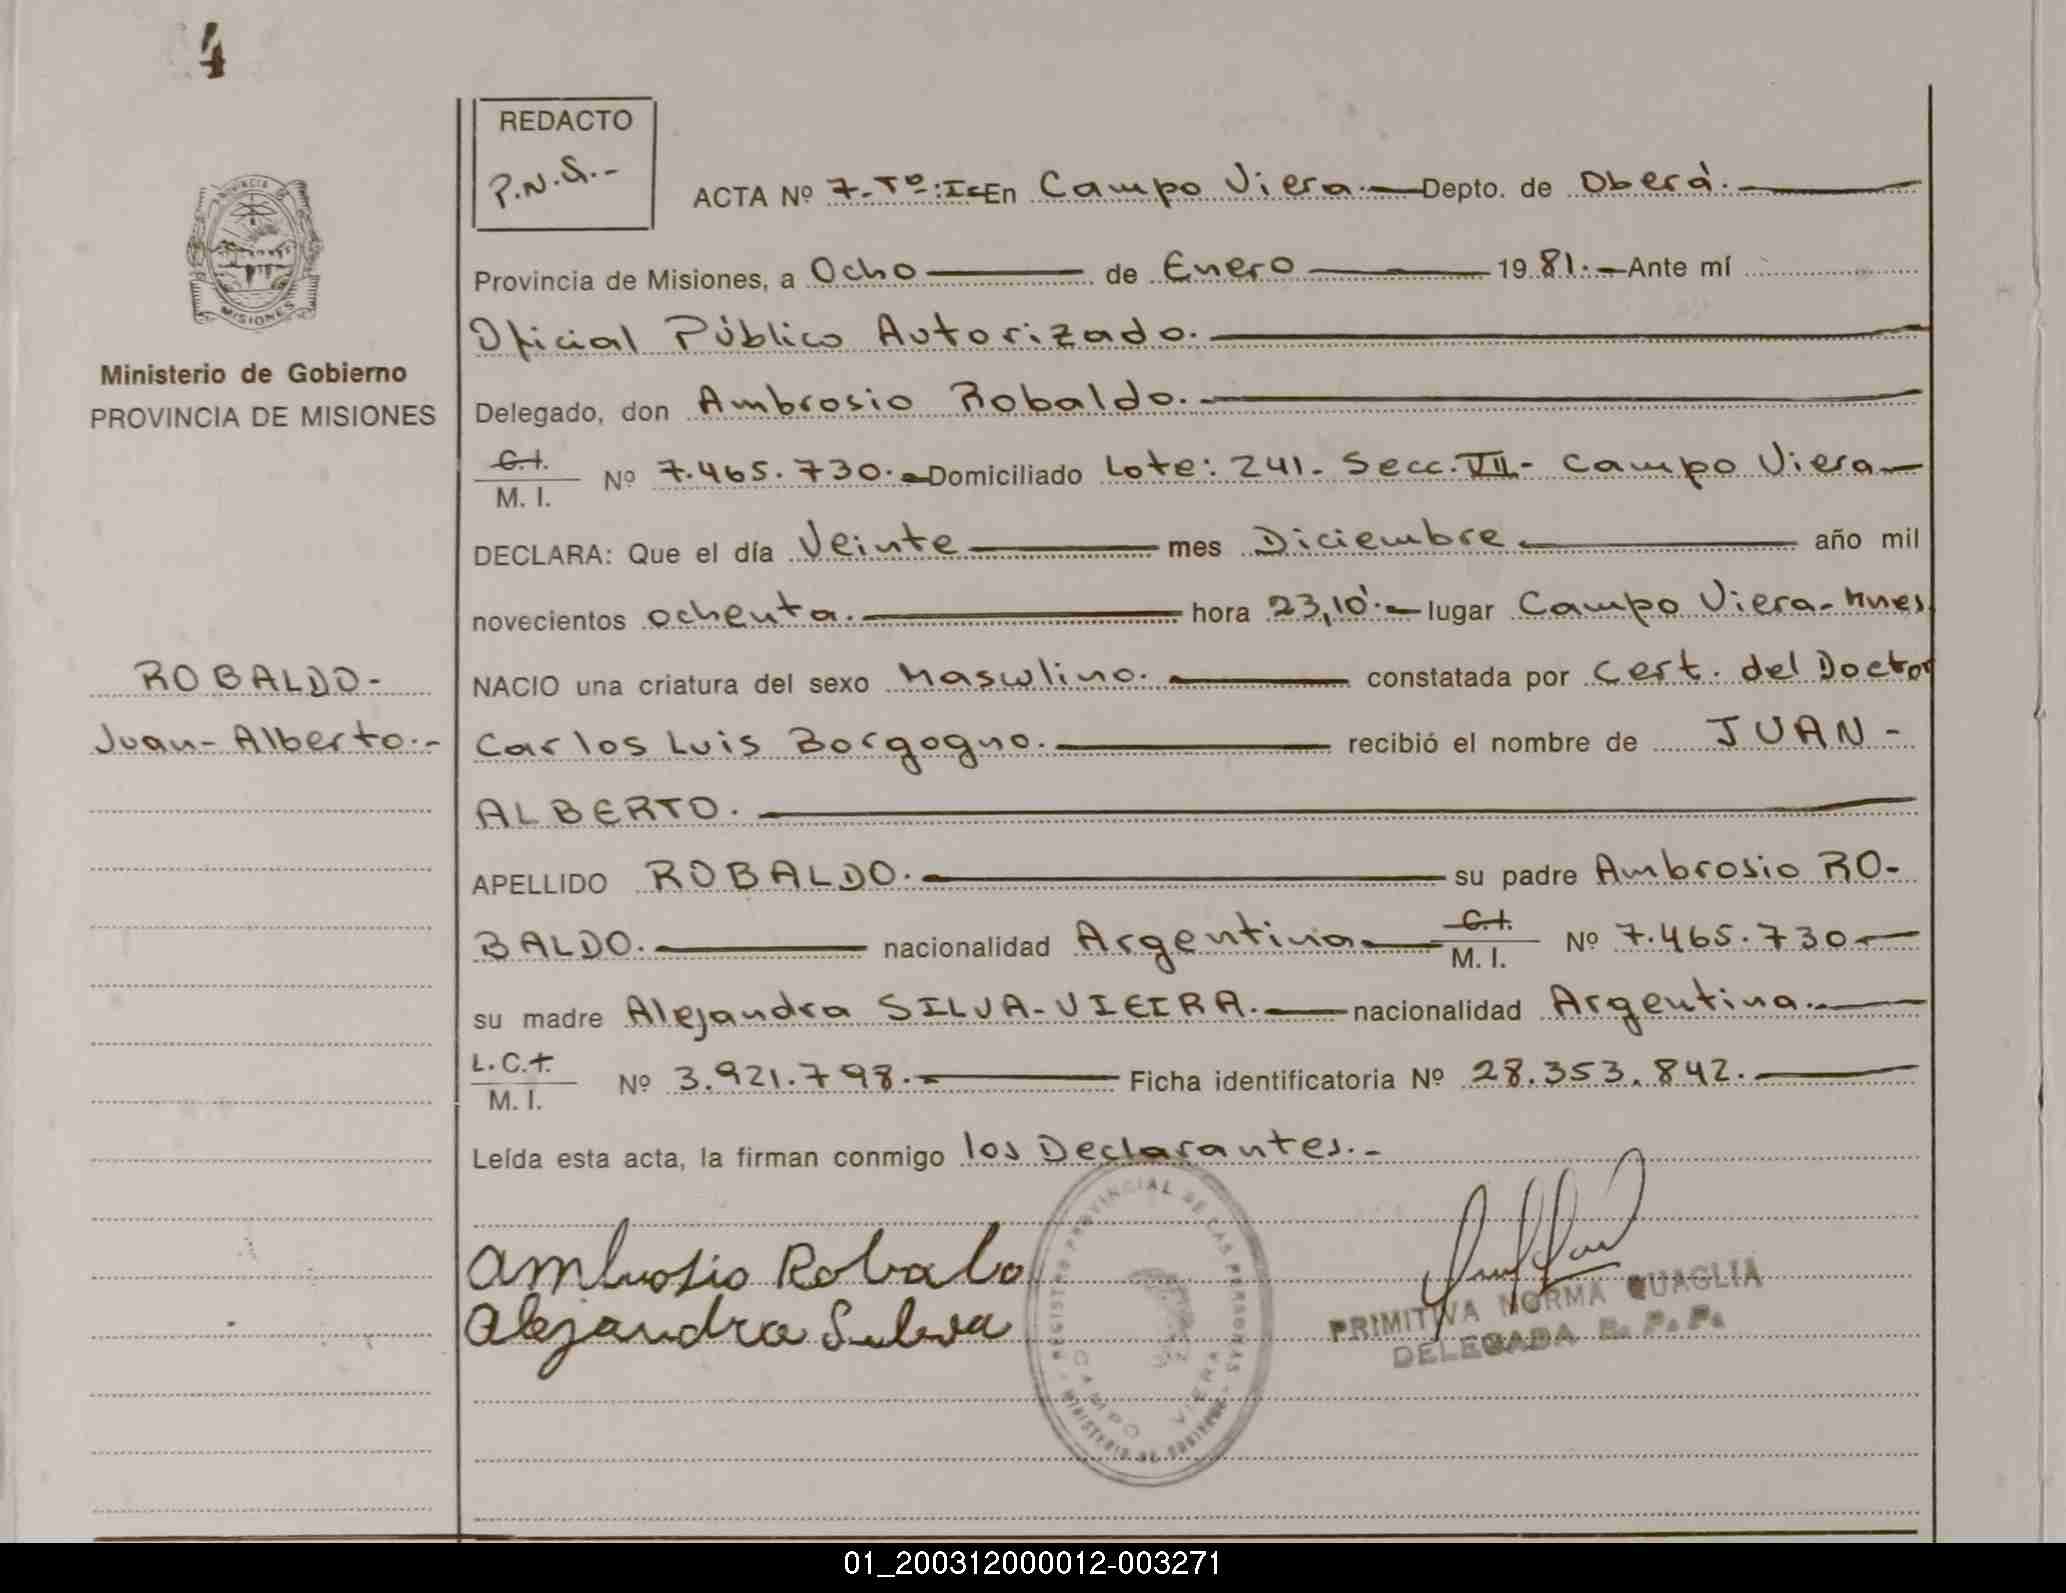 4
REDACTO
P.N.Q.-
ACTA Nº 7-Tº:I=En Campo Viera.- Depto. de Oberá.
Provincia de Misiones, a Ocho de Enero 1981.- Ante mí
Oficial Público Autorizado.
Delegado, don Ambrosio Robaldo.
C.I.
M. I. Nº 7.465.730.- Domiciliado Lote: 241- Secc. VII- Campo Viera
DECLARA: Que el día Veinte mes Diciembre año mil
novecientos ochenta. hora 23,10'.- lugar Campo Viera- Mnes
NACIO una criatura del sexo Masculino. constatada por Cert. del Doctor
Carlos Luis Borgogno. recibió el nombre de JUAN-
ALBERTO.
APELLIDO ROBALDO. su padre Ambrosio RO-
BALDO. nacionalidad Argentina C.I.
M. I. Nº 7.465.730
su madre Alejandra SILVA-VIEIRA. nacionalidad Argentina.
L.C.I.
M. I. Nº 3.921.798.- Ficha identificatoria Nº 28.353.842.
Leída esta acta, la firman conmigo los Declarantes.-
Ambrosio Robaldo
Alejandra Silva
REGISTRO PROVINCIAL DE LAS PERSONAS
MINISTERIO DE GOBIERNO
CAMPO VIERA
PRIMITIVA NORMA QUAGLIA
DELEGADA R. P. P.
PROVINCIA
MISIONES
Ministerio de Gobierno
PROVINCIA DE MISIONES
ROBALDO-
Juan-Alberto.-
01_200312000012-003271